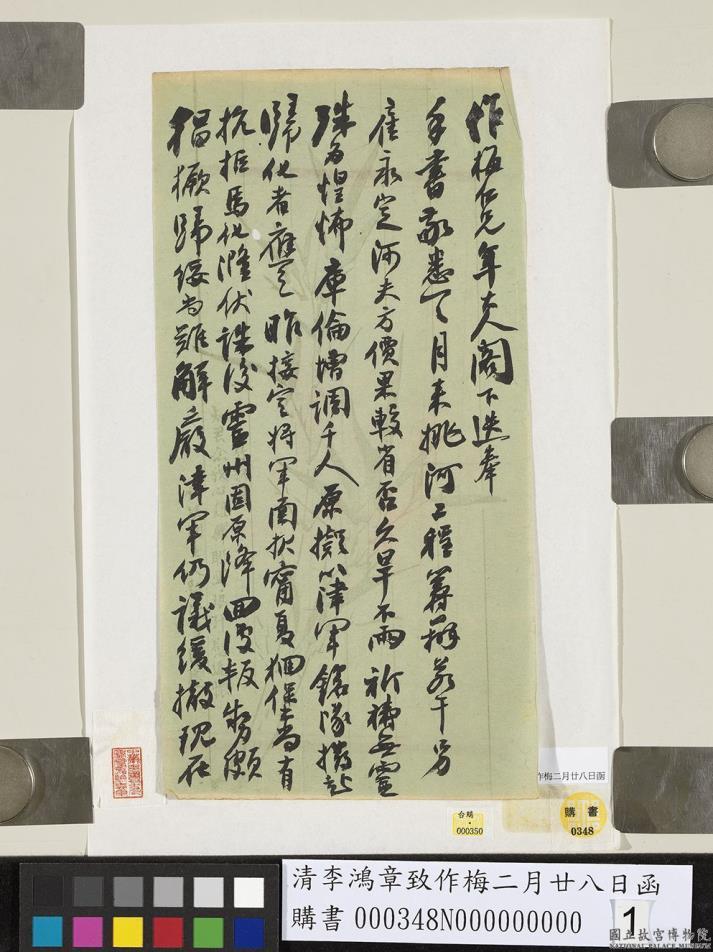 作梅仁兄年大人閣下迭奉
手書敬悉一一月來挑河工程籌辦若干另
僱永定河夫方價果較省否久旱不雨祈禱無靈
殊為惶怖庫倫增調千人原擬以津軍銘隊撥赴
歸化者應之昨接定將軍函於甯夏捆保尚有
抗拒馬化漋伏誅後靈州固原降回復叛勢頗
猖獗歸綏尚難解嚴津軍仍議緩撤現在
作梅二月廿八日函
台購
000350
購書
0348
清李鴻章致作梅二月廿八日函
購書 000348N000000000
1
國立故宮博物院
NATIONAL PALACE MUSEUM